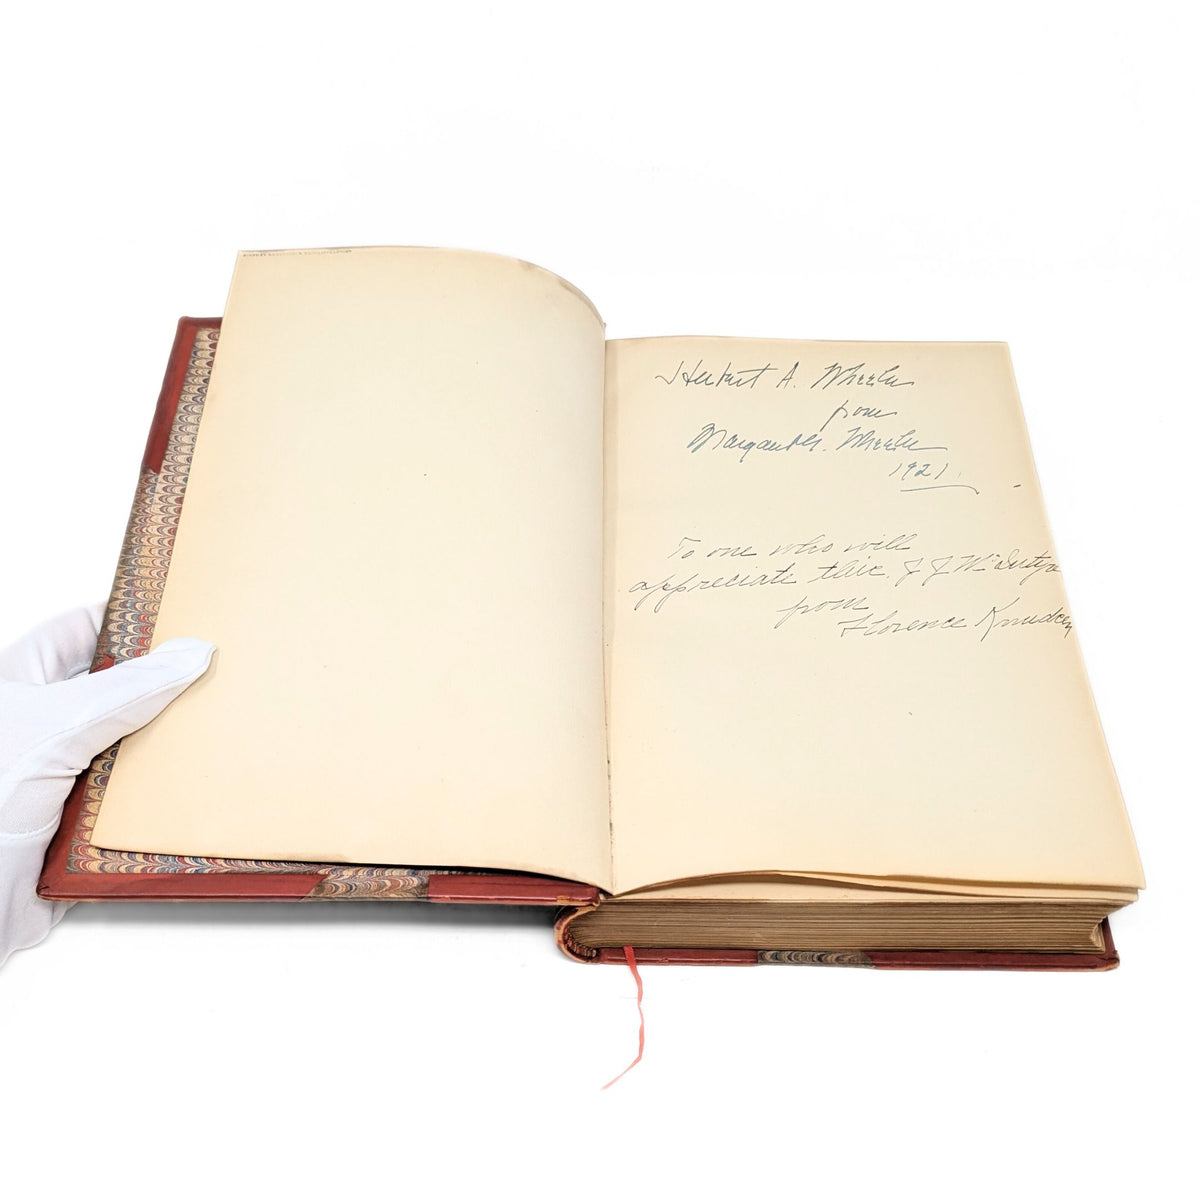 Herbert A. Wheeler
from
Margaret G. Wheeler
1921.
To one who will
appreciate this. J J
from
Florence Knudsen